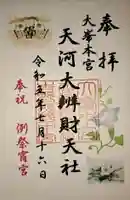 奉拝
大峯本宮
天河大辨財天社
令和五年七月十六日
奉祝
例祭宵宮